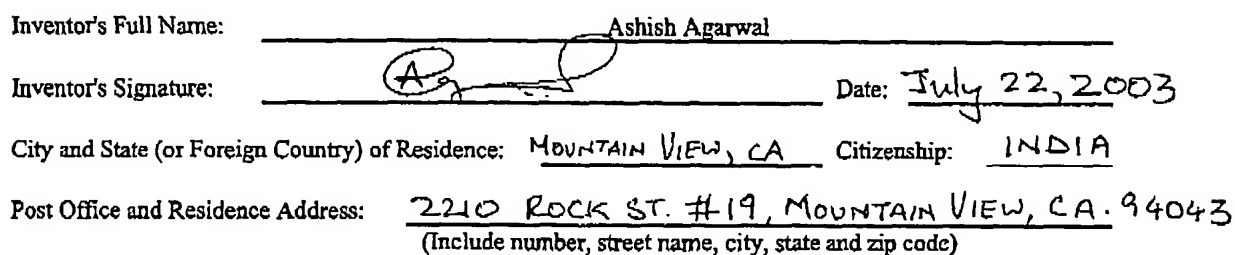 Inventor's Full Name: Ashish Agarwal
Inventor's Signature: Date: July 22, 2003
City and State (or Foreign Country) of Residence: MOUNTAIN VIEW, CA Citizenship: INDIA
Post Office and Residence Address: 2210 ROCK ST. #19, MOUNTAIN VIEW, CA. 94043
(Include number, street name, city, state and zip code)